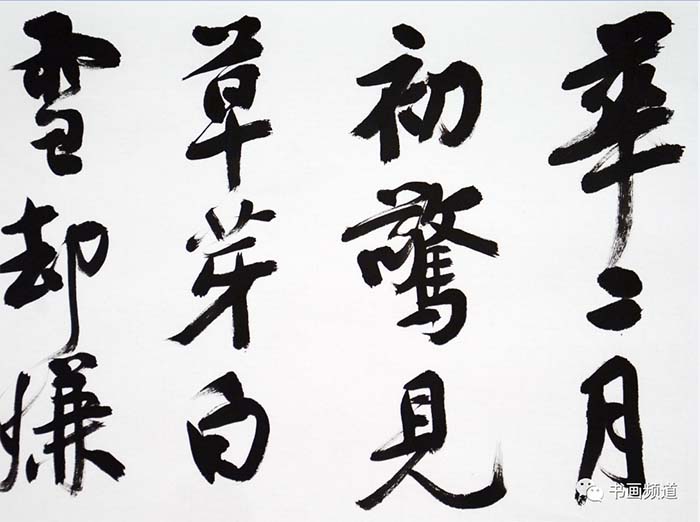 華二月
初驚見
草芽白
雪却嫌
书画频道